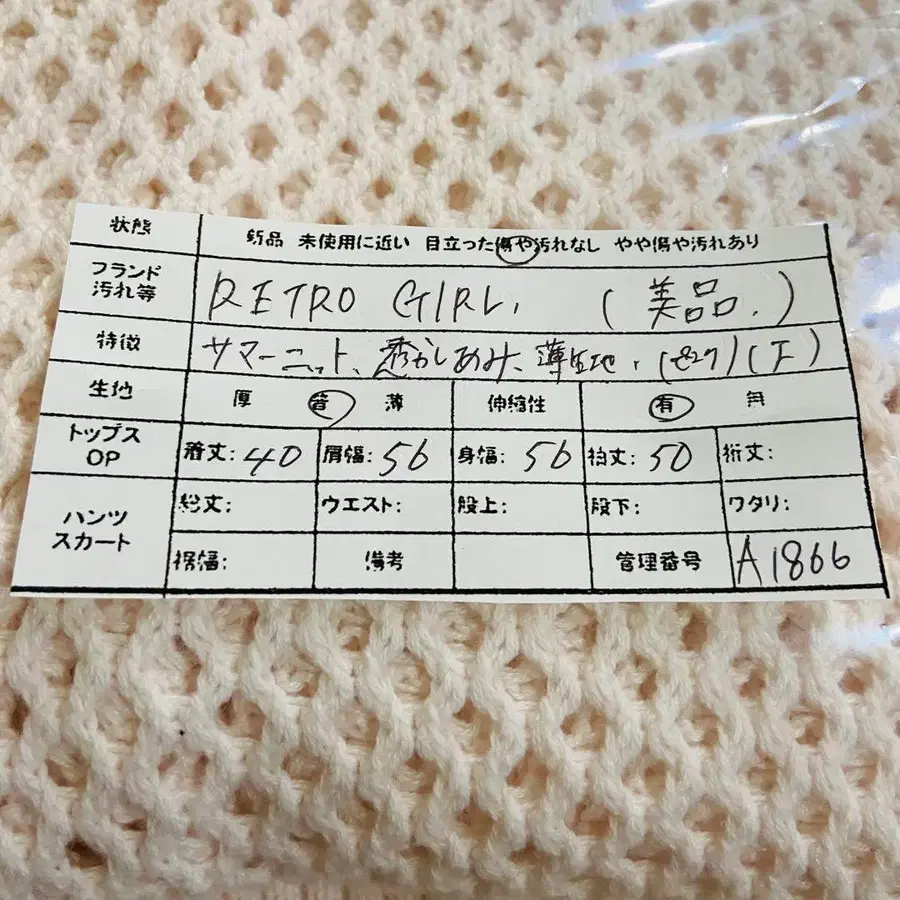 状態 新品 未使用に近い 目立った傷や汚れなし やや傷や汚れあり
ブランド 汚れ等 RETRO GIRL, (美品.)
特徴 サマーニット、透かしあみ、薄生地, (F)
生地 厚 普 薄 伸縮性 有 無
トップス OP 着丈:40 肩幅:56 身幅:56 裄丈:50 裄丈:
ハンツ スカート 総丈: ウエスト: 股上: 股下: ワタリ:
裾幅: 備考 管理番号 A1866